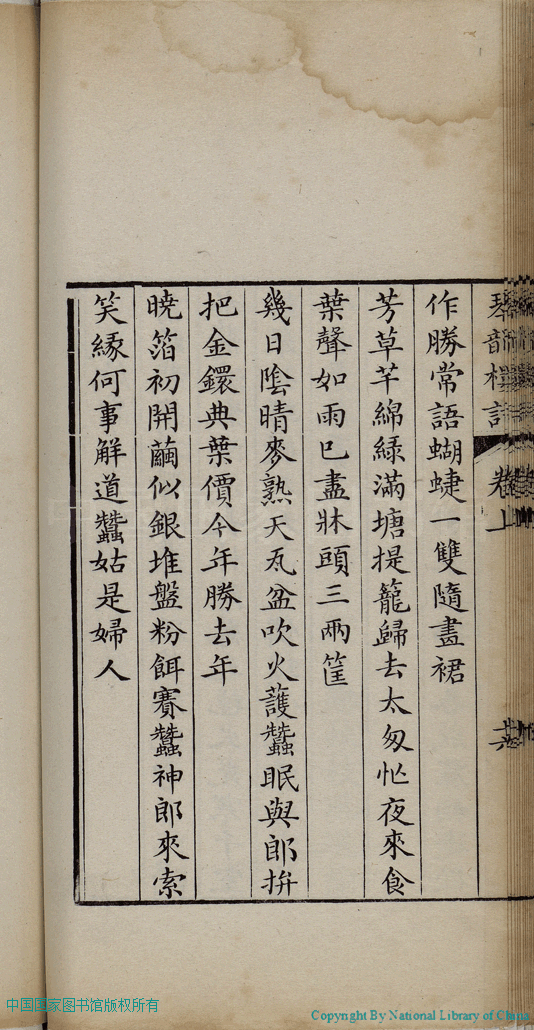 琴韵樓詩 卷上 廿六
作勝常語蝴蜨一雙隨畫裙
芳草芊綿緑滿塘提籠歸去太匆忙夜來食
葉聲如雨已盡牀頭三兩筐
幾日陰晴麥熟天瓦盆吹火護蠶眠與郎拚
把金鐶典葉價今年勝去年
曉箔初開繭似銀堆盤粉餌賽蠶神郎來索
笑緣何事解道蠶姑是婦人
中国国家图书馆版权所有
Copyright By National Library of China